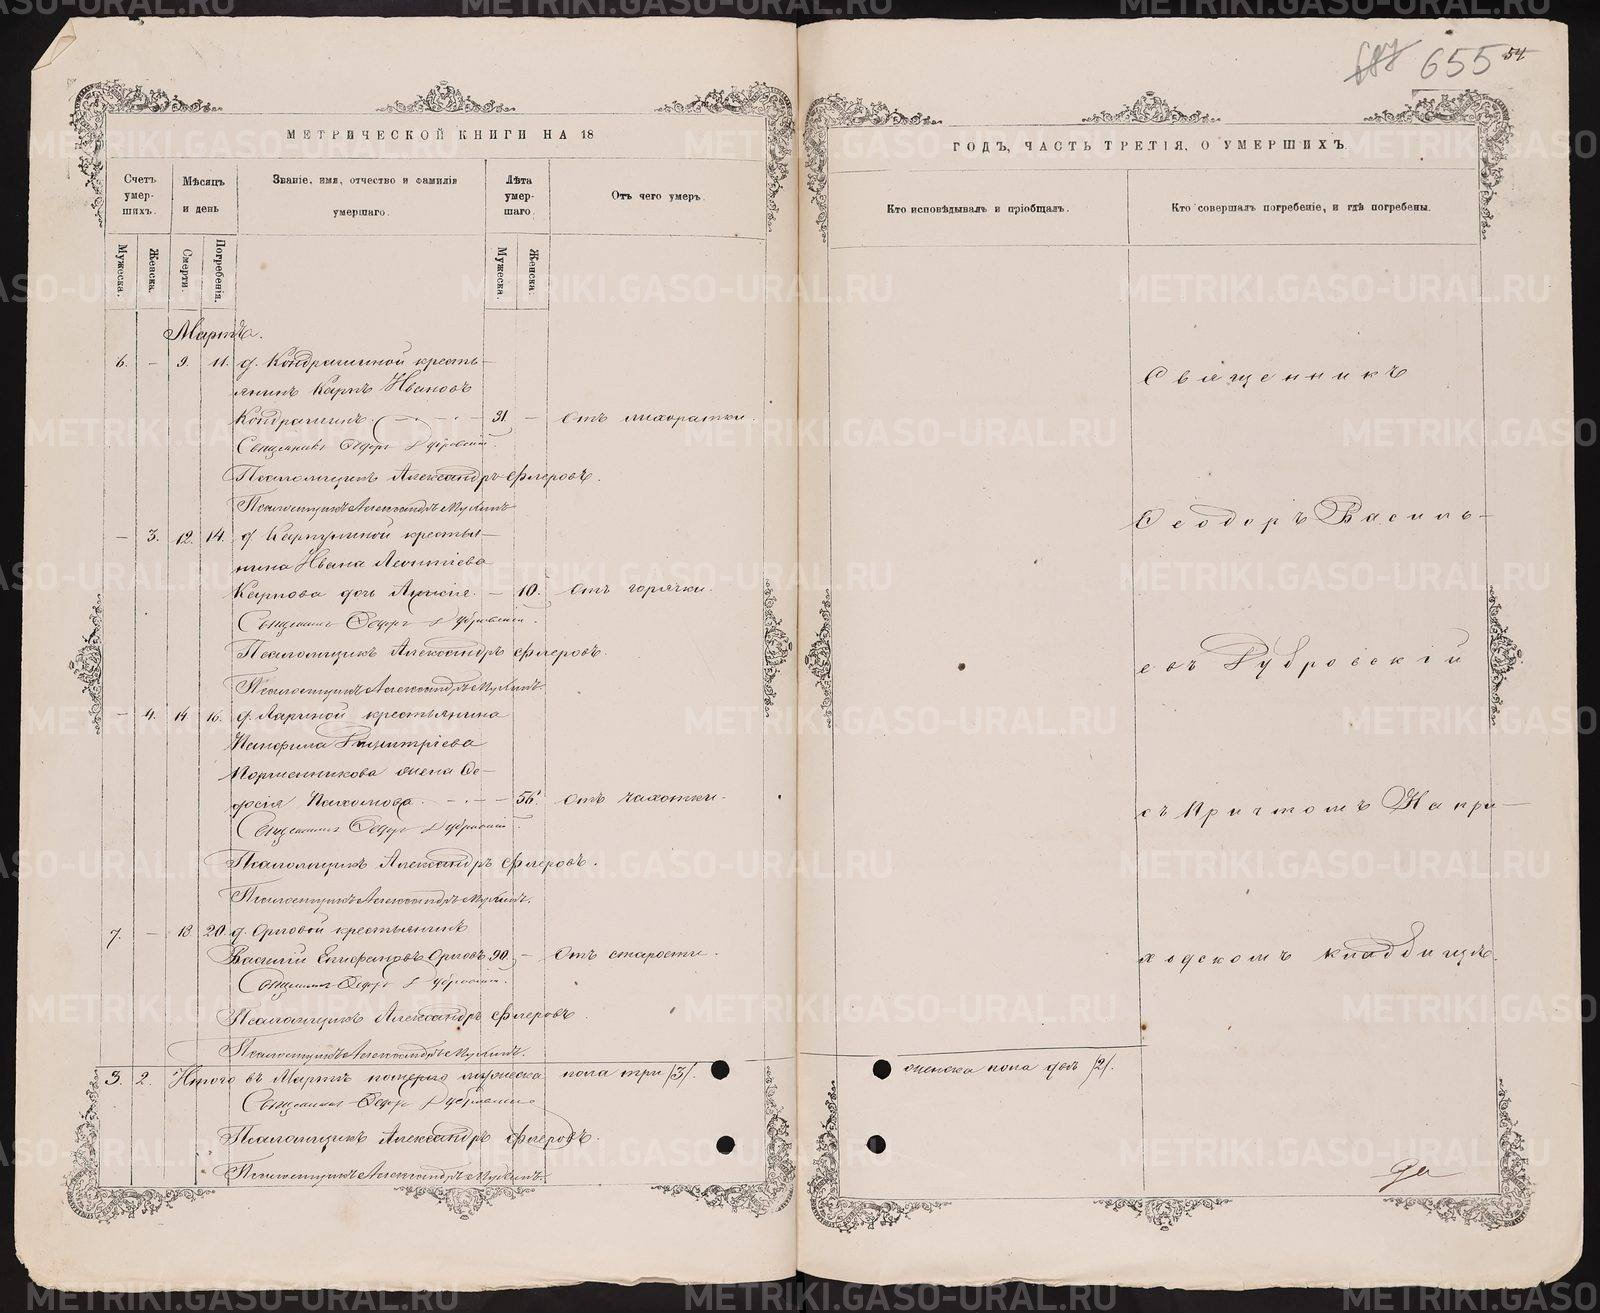 687 655 54
МЕТРИЧЕСКОЙ КНИГИ НА 18
ГОДЪ, ЧАСТЬ ТРЕТІЯ, О УМЕРШИХЪ.
Счетъ умер- шихъ.
Мѣсяцъ и день
Званіе, имя, отчество и фамилія умершаго.
Лѣта умер- шаго.
Отъ чего умеръ.
Кто исповѣдывалъ и пріобщалъ.
Кто совершалъ погребеніе, и гдѣ погребены.
Мужеска. Женска. Смерти. Погребенія. Мужеска. Женска.
Мартъ.
6. – 9. 11. д. Кондрашиной кресть-
янинъ Карпъ Ивановъ
Кондрашинъ. 31. – Отъ лихоратки.
Священникъ Ѳедоръ Дубровскій.
Псаломщикъ Александръ Флеровъ.
Псаломщикъ Александръ
– 3. 12. 14. д. Карпушиной крестья-
нина Ивана Леонтіева
Карпова дочь – 10. Отъ горячки.
Священникъ Ѳедоръ Дубровскій.
Псаломщикъ Александръ Флеровъ.
Псаломщикъ Александръ
– 4. 14 16. д. Лариной крестьянина
Панфила Димитріева
жена Ѳе-
досія Пахомова. – 56. Отъ чахотки.
Священникъ Ѳедоръ Дубровскій.
Псаломщикъ Александръ Флеровъ.
Псаломщикъ Александръ
7. – 18 20. д. Орловой крестьянинъ
Василій Епифановъ Орловъ 90. – Отъ старости.
Священникъ Ѳедоръ Дубровскій.
Псаломщикъ Александръ Флеровъ.
Псаломщикъ Александръ
3. 2. Итого въ Мартѣ померло мужеска пола три /3/. женска пола двѣ /2/.
Священникъ Ѳедоръ Дубровскій
Псаломщикъ Александръ Флеровъ.
Псаломщикъ Александръ
Священникъ
Ѳеодоръ Василь-
евъ Дубровскій
съ Причтомъ На при-
ходскомъ кладбищѣ.
METRIKI.GASO-URAL.RU